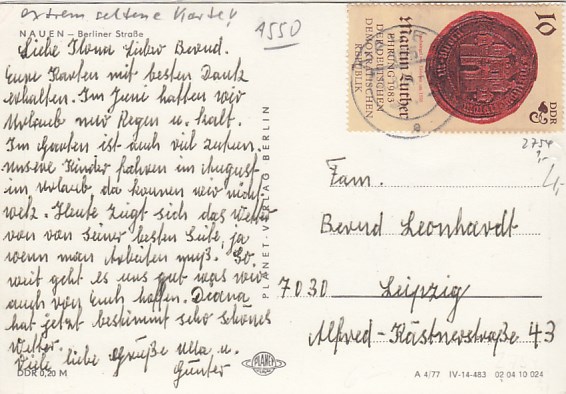 extrem seltene Karte!
A550
NAUEN – Berliner Straße
Liebe Ilona Lieber Bernd.
Eure Karten mit besten Dank
erhalten. Im Juni hatten wir
Urlaub nur Regen u. kalt.
Im Garten ist auch viel zutun.
unsere Kinder fahren im August
im Urlaub da können wir nicht
weck. Heute zeigt sich das Wetter
von von seiner besten Seite, ja
wenn man Arbeiten muß. So
weit geht es uns gut was wir
auch von Euch hoffen. Deana
hat jetzt bestimmt sehr schönes
Wetter.
Viele liebe Grüße Ulla u.
Günter
DDR 0,20 M
PLANET-VERLAG BERLIN
PLANET
10
DDR
Martin Luther
EHRUNG 1983
DER DEUTSCHEN
DEMOKRATISCHEN
REPUBLIK
2754
1,-
4,-
Fam.
Bernd Leonhardt
7030 Leipzig
Alfred-Kästnerstraße 43
A 4/77 IV-14-483 02 04 10 024